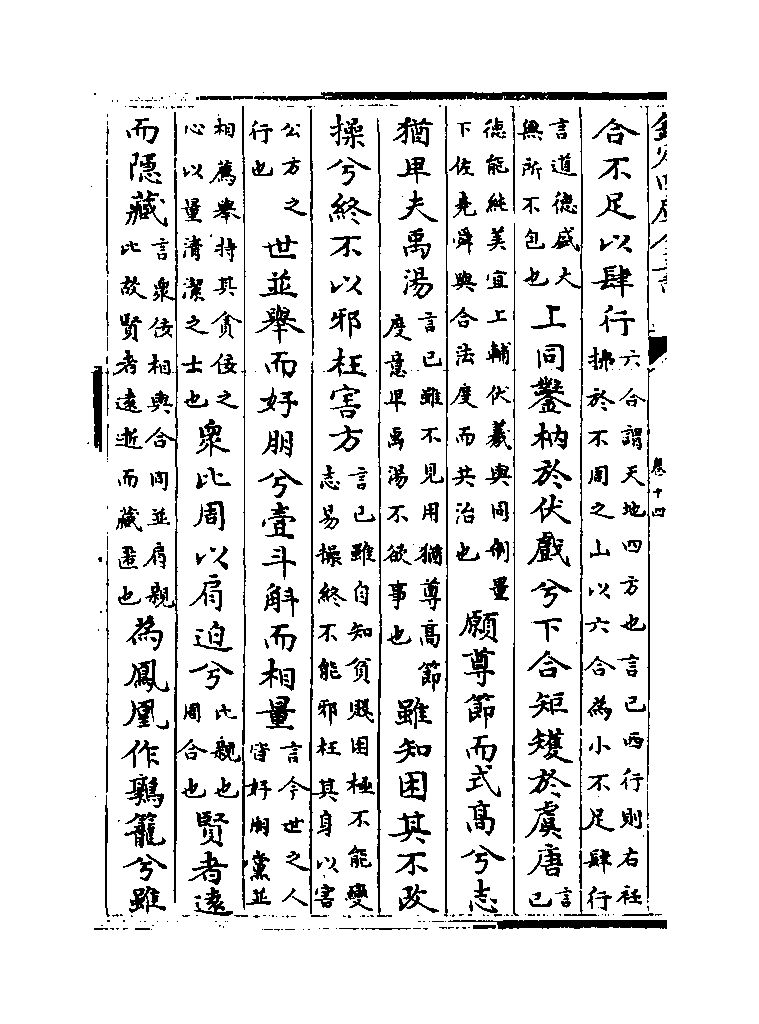 欽定四庫全書
卷十四
合不足以肆行六合謂天地四方也言己西行則右衽拂於不周之山以六合為小不足肆行
言道德盛大無所不包也上同鑿枘於伏戲兮下合矩矱於虞唐言己
德能純美宜上輔伏羲與同制量下佐堯舜與合法度而共治也願尊節而式高兮志
猶卑夫禹湯言己雖不見用猶尊高節度意卑禹湯不欲事也雖知困其不改
操兮終不以邪枉害方言己雖自知貧賤困極不能變志易操終不能邪枉其身以害
公方之行也世並舉而好朋兮壹斗斛而相量言今世之人皆好朋黨並
相薦舉持其貪佞之心以量清潔之士也衆比周以肩迫兮比親也周合也賢者遠
而隱藏言衆佞相與合同並肩親比故賢者遠逝而藏匿也為鳳凰作鶉籠兮雖